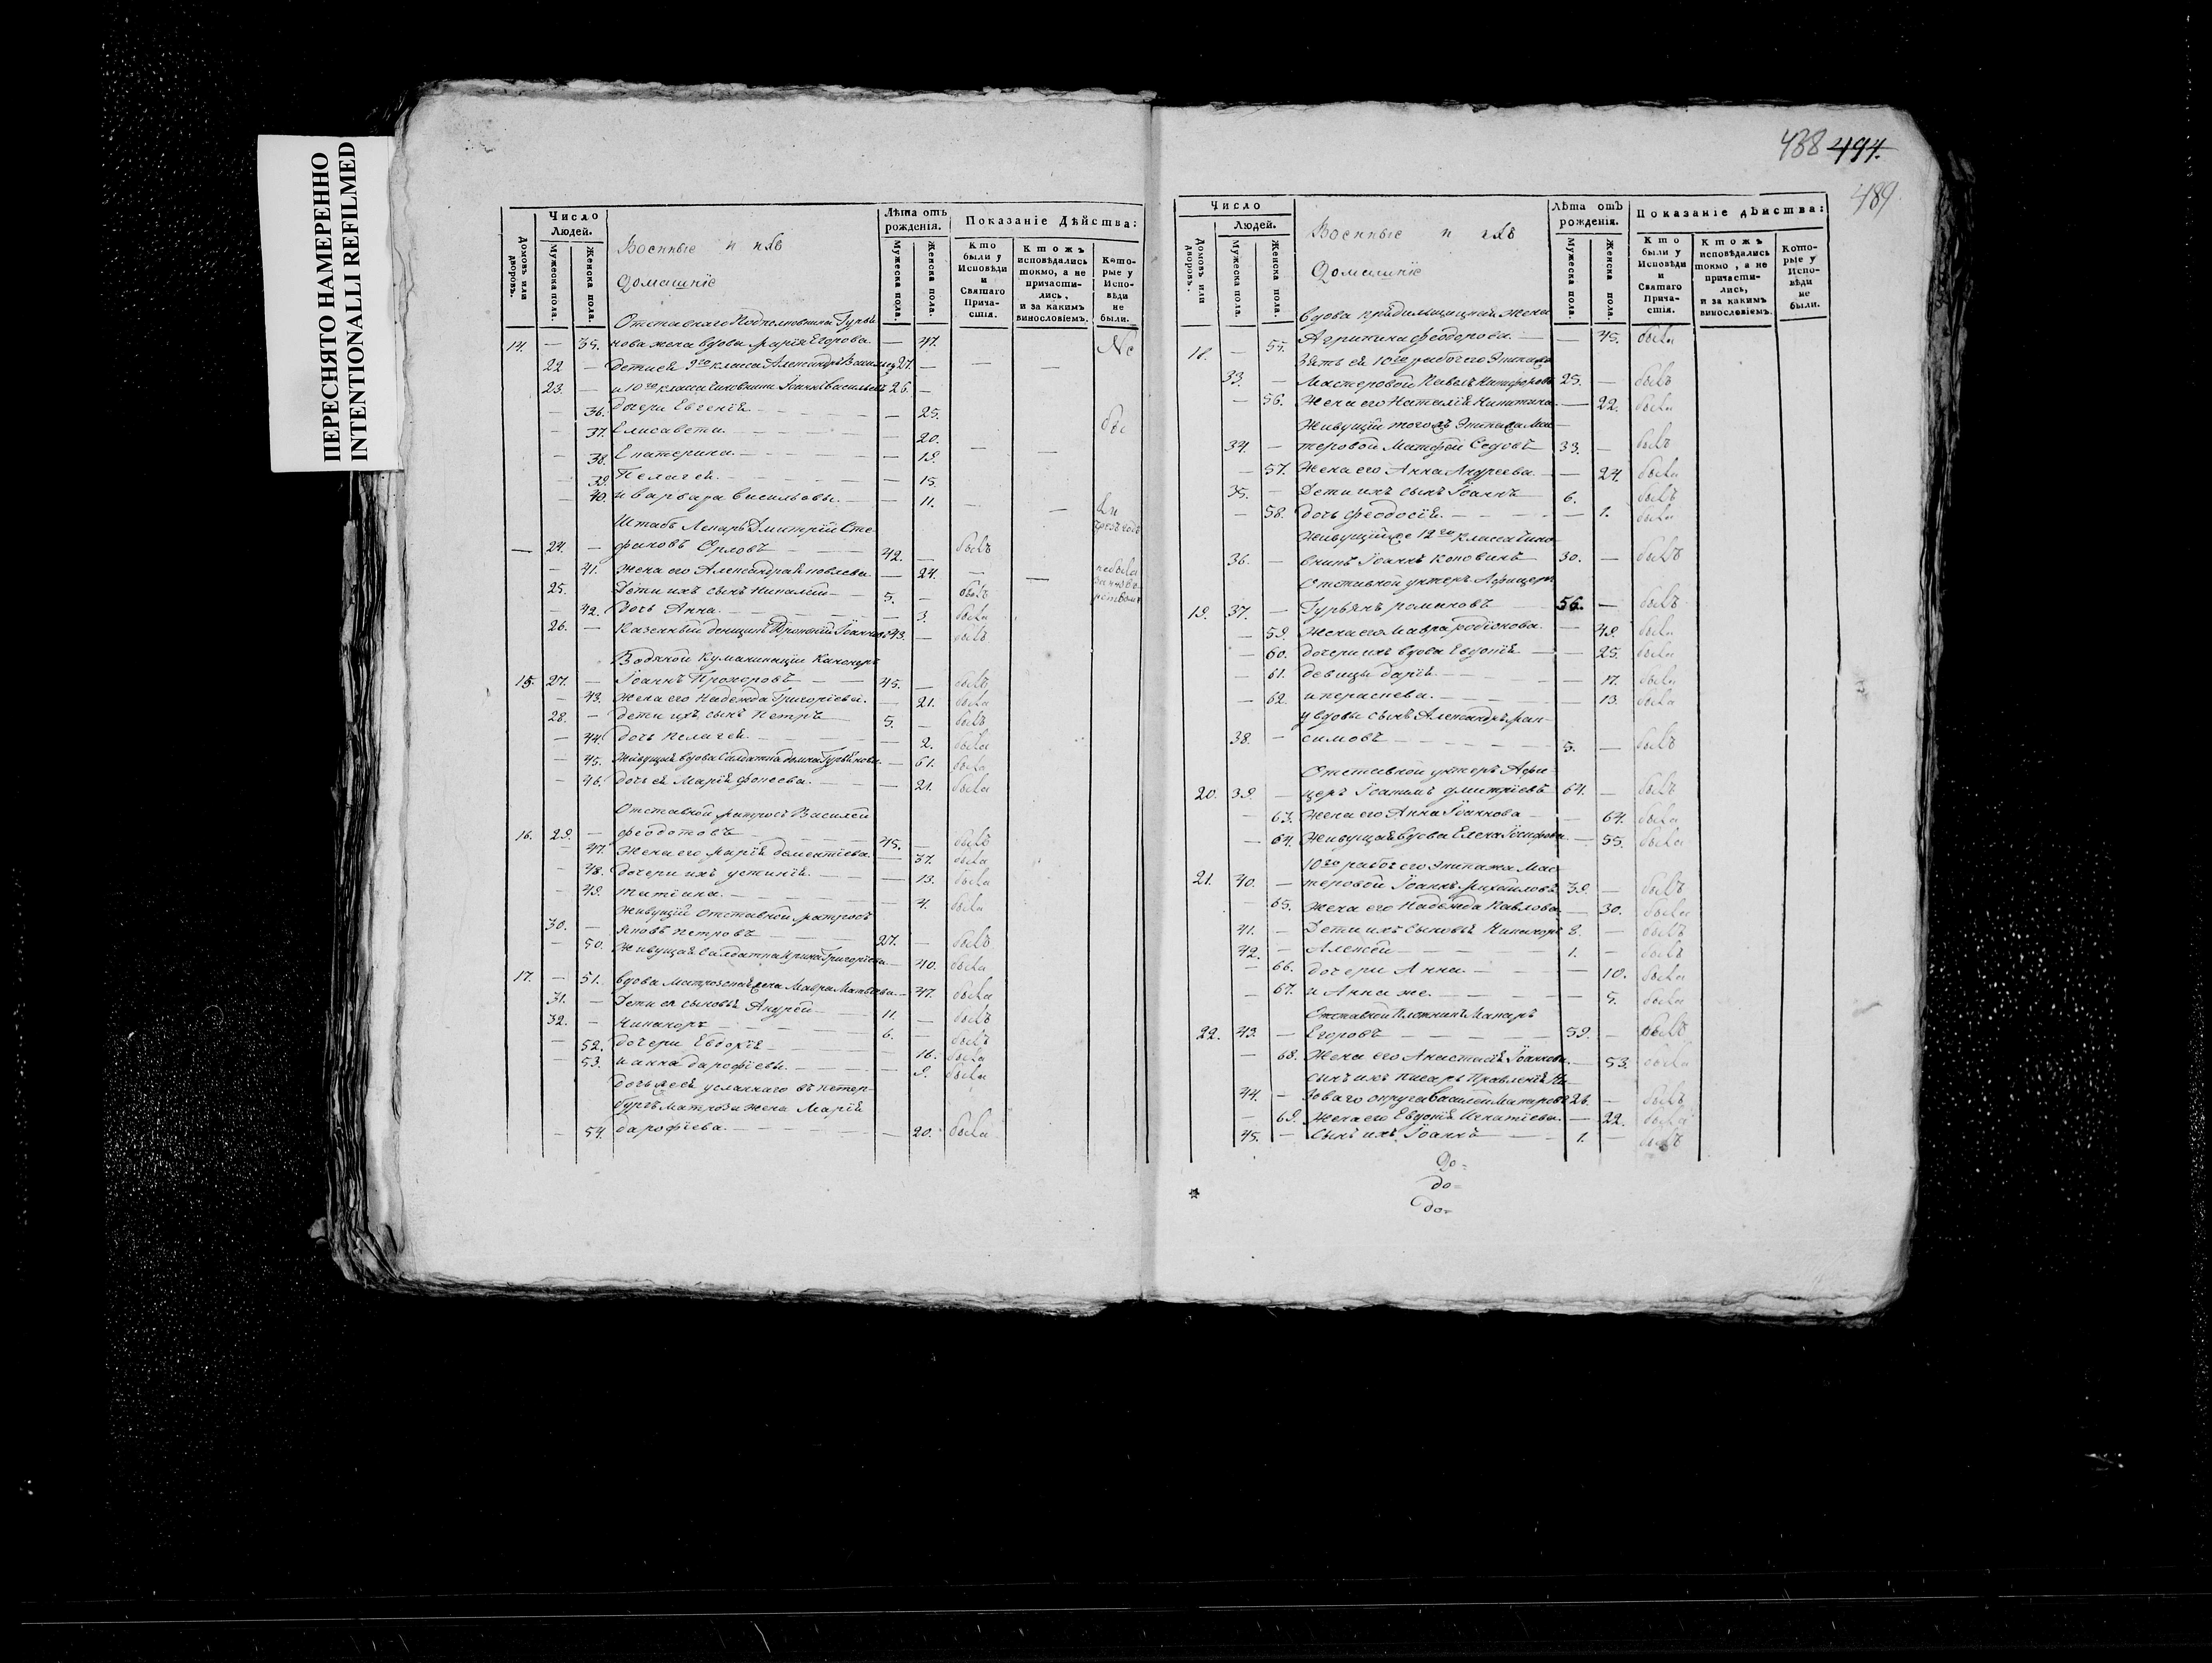 ПЕРЕСНЯТО НАМЕРЕННО
INTENTIONALLI REFILMED
438 494.
489
Число
Людей.
Домовъ или дворовъ.
Мужеска пола.
Женска пола.
Военные и ихъ
Домашніе
Лѣта отъ рожденія.
Мужеска пола.
Женска пола.
Показаніе Дѣйства:
Кто были у Исповѣди и Святаго Прича-стія.
Ктожъ исповѣдались токмо, а не причасти-лись, и за какимъ винословіемъ.
Кото-рые у Испо-вѣди не были.
Отставнаго Подполковника Гурьѣ
14. — 35. нова жена вдова Марія Егорова — 47. Не
22 — детиея 9го класса Александръ 27. —
23. — и 10го класса чиновники Іоаннъ Васильевъ 26. —
— 36. дочери Евгенія — 25.
— 37. Елисавета — 20.
— 38. Екатерина — 19.
— 39. Пелагея — 15.
— 40. и варвара васильевы — 11.
Штабъ Лекарь Дмитрій Сте
— 24. — фановъ Орловъ 42. — былъ
— 41. жена его Александра — 24. — небыла
25. — Дети ихъ сынъ Николай 5. — былъ
— 42. дочь Анна — 3. была
26. — Казенный денщикъ 43. — былъ
Водяной Кумуникаціи
15. 27. — Іоаннъ Прохоровъ 45. — былъ
— 43. жена его Надежда Григоріева — 21. была
28. — дети ихъ сынъ Петръ 5. — былъ
— 44. дочь Пелагея — 2. была
— 45. живущая вдова Салдатка домна — 61. была
— 46. дочь ея Марія фокеева — 21. была
Отставной матросъ Василей
16. 29. — феодотовъ 45. — былъ
— 47. жена его марія дементіева — 37. была
— 48. дочери ихъ устинія — 13. была
— 49. татіана — 4. была
живущій отставной матросъ
30. — яковъ петровъ 27. — былъ
— 50. живущая салдатка ирина Григоріева — 40. была
17. — 51. вдова матрозская жена Мавра Матвѣева — 47. была
31. — Дети ея сыновья Андрей 11. — былъ
32. — Никаноръ 6. — былъ
— 52. дочери Евдокія — 16. была
— 53. и анна дарофѣевы — 9. была
дочь усланнаго въ петер-
бургъ матроза жена Марія
— 54. дарофѣева — 20. была
Число
Людей.
Домовъ или дворовъ.
Мужеска пола.
Женска пола.
Военные и ихъ
Домашніе
Лѣта отъ рожденія.
Мужеска пола.
Женска пола.
Показаніе дѣйства:
Кто были у Исповѣди и Святаго Прича-стія.
Ктожъ исповѣдались токмо, а не причасти-лись, и за какимъ винословіемъ.
Кото-рые у Испо-вѣди не были.
вдова жена
18. — 55. Агрипина феодорова — 45. была
Зять ея 10го рабочего Экипажа
33. — Мастеровой Павелъ Никифоровъ 25. — былъ
— 56. Жена его Наталія Никитина — 22. была
Живущій тогожъ Экипажа Мас
34. — теровой Матфей Седовъ 33. — былъ
— 57. Жена его Анна Андреева — 24. была
35. — Дети ихъ сынъ Іоаннъ 6. былъ
— 58. дочь феодосія — 1. была
живущій 12го класса чино
36. — вникъ Іоаннъ 30. — былъ
Отставной унтеръ Афицеръ
19. 37. — Гурьянъ романовъ 56. — былъ
— 59. жена его Мавра родіонова — 49. была
— 60. дочери ихъ вдова Евдокія — 25. была
— 61. девицы дарія — 17. была
— 62. — 13. была
у вдовы сынъ Александръ мак
38. — симовъ 5. — былъ
Отставной унтеръ Афи
20. 39. — церъ Іоакимъ дмитріевъ 64. — былъ
— 63. жена его Анна Іоаннова — 64. была
— 64. Живущая вдова Елена Іосифова — 55. была
10го рабочего экипажа Мас
21. 40. — теровой Іоаннъ михайловъ 39. — былъ
— 65. жена его Надежда Павлова — 30. была
41. — Дети ихъ сыновья Никаноръ 8. — былъ
42. — Алексей 1. — былъ
— 66. дочери Анна — 10. была
— 67. и Анна же — 5. была
Отставной Плотникъ Макаръ
22. 43. — Егоровъ 59. — былъ
— 68. Жена его Анастасія Іоаннова — 53. была
сынъ ихъ писарь Правленія
44. — округа Василей Макаровъ 26. — былъ
— 69. жена его Евдокія Игнатіева — 22. была
45. — Сынъ ихъ Іоаннъ 1. — былъ
До-
до-
до-